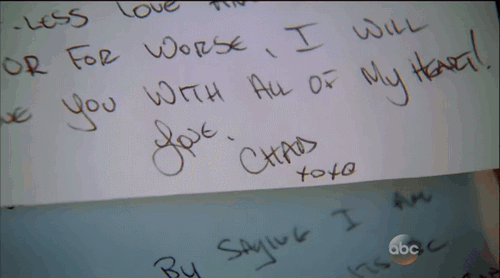 .LESS LOVE
OR FOR WORSE, I WILL
YOU WITH ALL OF MY HEART!
LOVE.
CHAD
XOXO
BY SAYING I AM
abc